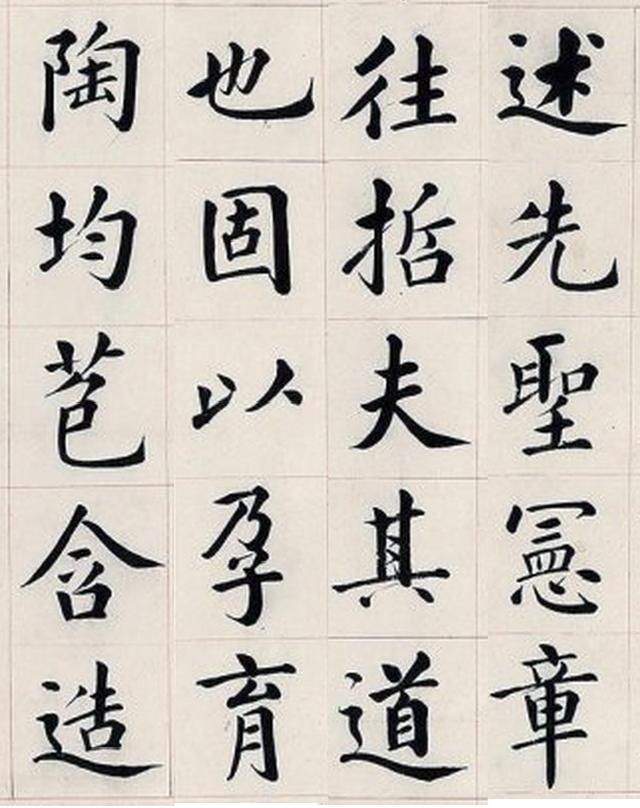 述先聖憲章
往哲夫其道
也固以孕育
陶均苞含造